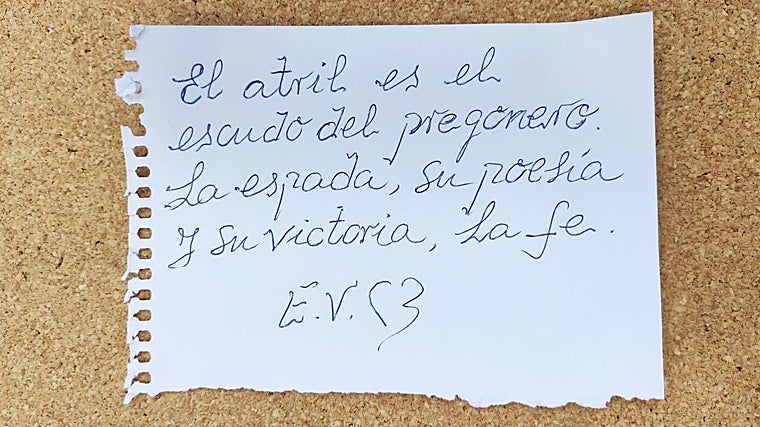 El atril es el
escudo del pregonero.
La espada, su poesía
y su victoria, la fe.
E.V.